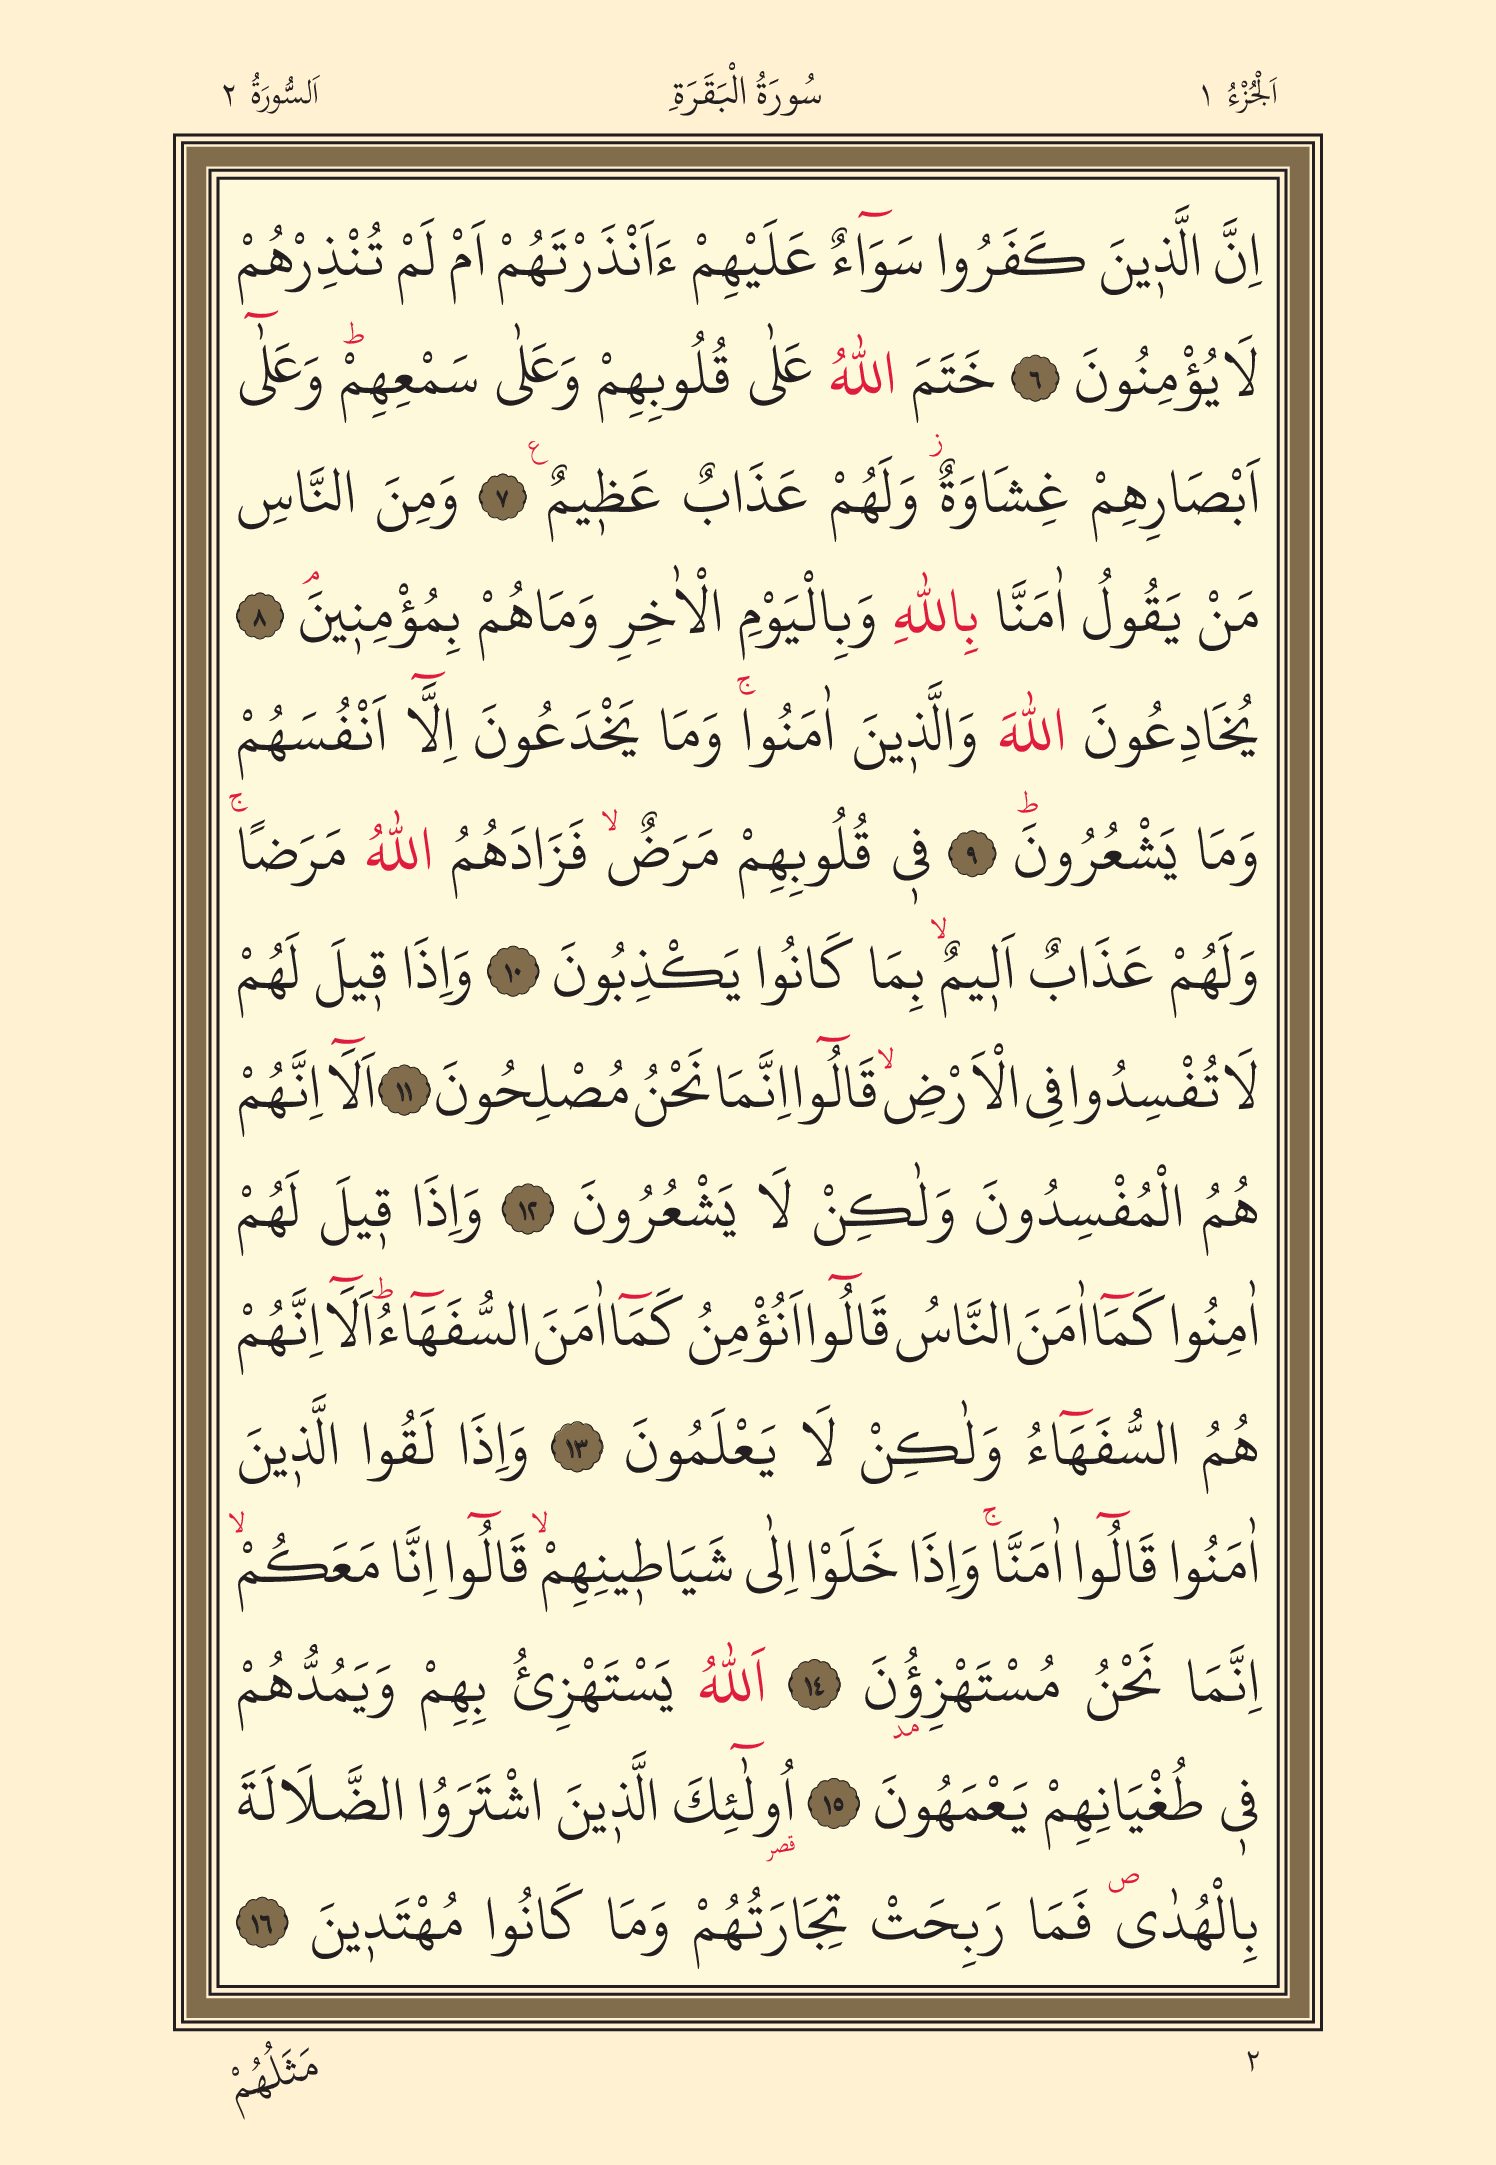 اَلْجُزْءُ ١ سُورَةُ الْبَقَرَةِ اَلسُّورَةُ ٢
اِنَّ الَّذٖينَ كَفَرُوا سَوَٓاءٌ عَلَيْهِمْ ءَاَنْذَرْتَهُمْ اَمْ لَمْ تُنْذِرْهُمْ
لَا يُؤْمِنُونَ ٦ خَتَمَ اللّٰهُ عَلٰى قُلُوبِهِمْ وَعَلٰى سَمْعِهِمْؕ وَعَلٰٓى
اَبْصَارِهِمْ غِشَاوَةٌؗ وَلَهُمْ عَذَابٌ عَظٖيمٌ ࣖ ٧ وَمِنَ النَّاسِ
مَنْ يَقُولُ اٰمَنَّا بِاللّٰهِ وَبِالْيَوْمِ الْاٰخِرِ وَمَاهُمْ بِمُؤْمِنٖينَۘ ٨
يُخَادِعُونَ اللّٰهَ وَالَّذٖينَ اٰمَنُواۚ وَمَا يَخْدَعُونَ اِلَّٓا اَنْفُسَهُمْ
وَمَا يَشْعُرُونَؕ ٩ فٖى قُلُوبِهِمْ مَرَضٌۙ فَزَادَهُمُ اللّٰهُ مَرَضًاۚ
وَلَهُمْ عَذَابٌ اَلٖيمٌۙ بِمَا كَانُوا يَكْذِبُونَ ١٠ وَاِذَا قٖيلَ لَهُمْ
لَا تُفْسِدُوا فِى الْاَرْضِۙ قَالُٓوا اِنَّمَا نَحْنُ مُصْلِحُونَ ١١ اَلَٓا اِنَّهُمْ
هُمُ الْمُفْسِدُونَ وَلٰكِنْ لَا يَشْعُرُونَ ١٢ وَاِذَا قٖيلَ لَهُمْ
اٰمِنُوا كَمَٓا اٰمَنَ النَّاسُ قَالُٓوا اَنُؤْمِنُ كَمَٓا اٰمَنَ السُّفَهَٓاءُؕ اَلَٓا اِنَّهُمْ
هُمُ السُّفَهَٓاءُ وَلٰكِنْ لَا يَعْلَمُونَ ١٣ وَاِذَا لَقُوا الَّذٖينَ
اٰمَنُوا قَالُٓوا اٰمَنَّاۚ وَاِذَا خَلَوْا اِلٰى شَيَاطٖينِهِمْۙ قَالُٓوا اِنَّا مَعَكُمْۙ
اِنَّمَا نَحْنُ مُسْتَهْزِؤُنَ ١٤ اَللّٰهُ يَسْتَهْزِئُ بِهِمْ وَيَمُدُّهُمْ
مد
فٖى طُغْيَانِهِمْ يَعْمَهُونَ ١٥ اُولٰٓئِكَ الَّذٖينَ اشْتَرَوُا الضَّلَالَةَ
قصر
بِالْهُدٰىࣕ فَمَا رَبِحَتْ تِجَارَتُهُمْ وَمَا كَانُوا مُهْتَدٖينَ ١٦
٢ مَثَلُهُمْ